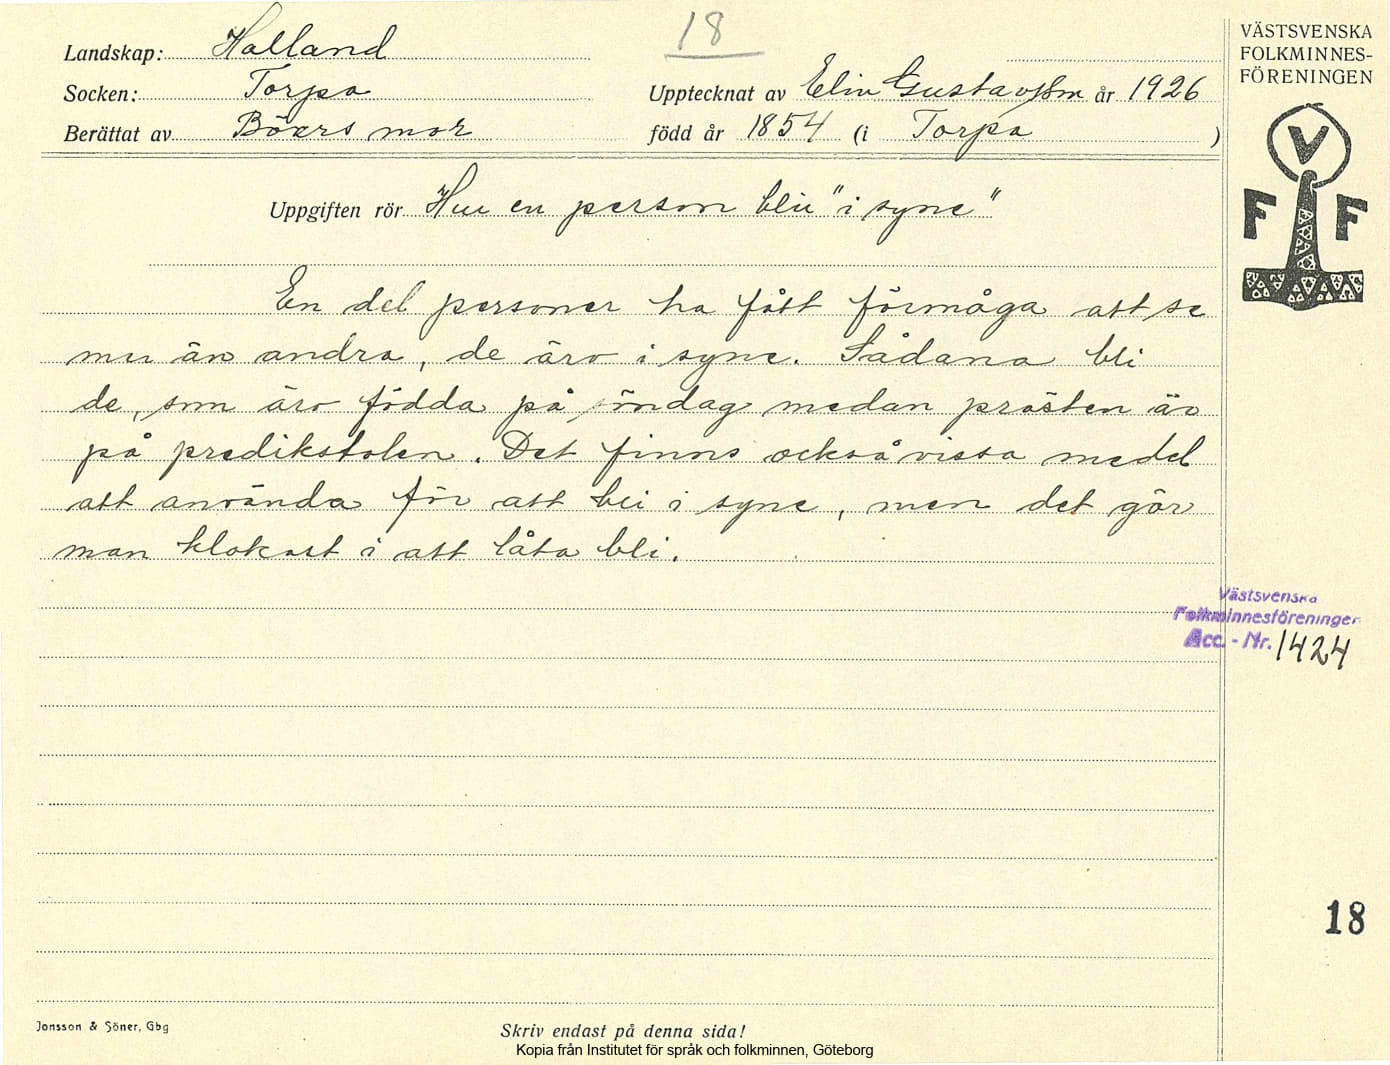 18
Landskap: Halland
Socken: Torpa
Upptecknat av Elin Gustavsson år 1926
Berättat av Böars mor
född år 1854 (i Torpa )
VÄSTSVENSKA
FOLKMINNES-
FÖRENINGEN
V
F F
Uppgiften rör Hur en person blir "i syne"
En del personer ha fått förmåga att se
mer än andra, de äro i syne. Sådana bli
de, som äro födda på söndag medan prästen är
på predikstolen. Det finns också vissa medel
att använda för att bli i syne, men det gör
man klokast i att låta bli.
Västsvenska
Folkminnesföreningen
Acc. - Nr. 1424
18
Jonsson & Söner, Gbg
Skriv endast på denna sida!
Kopia från Institutet för språk och folkminnen, Göteborg